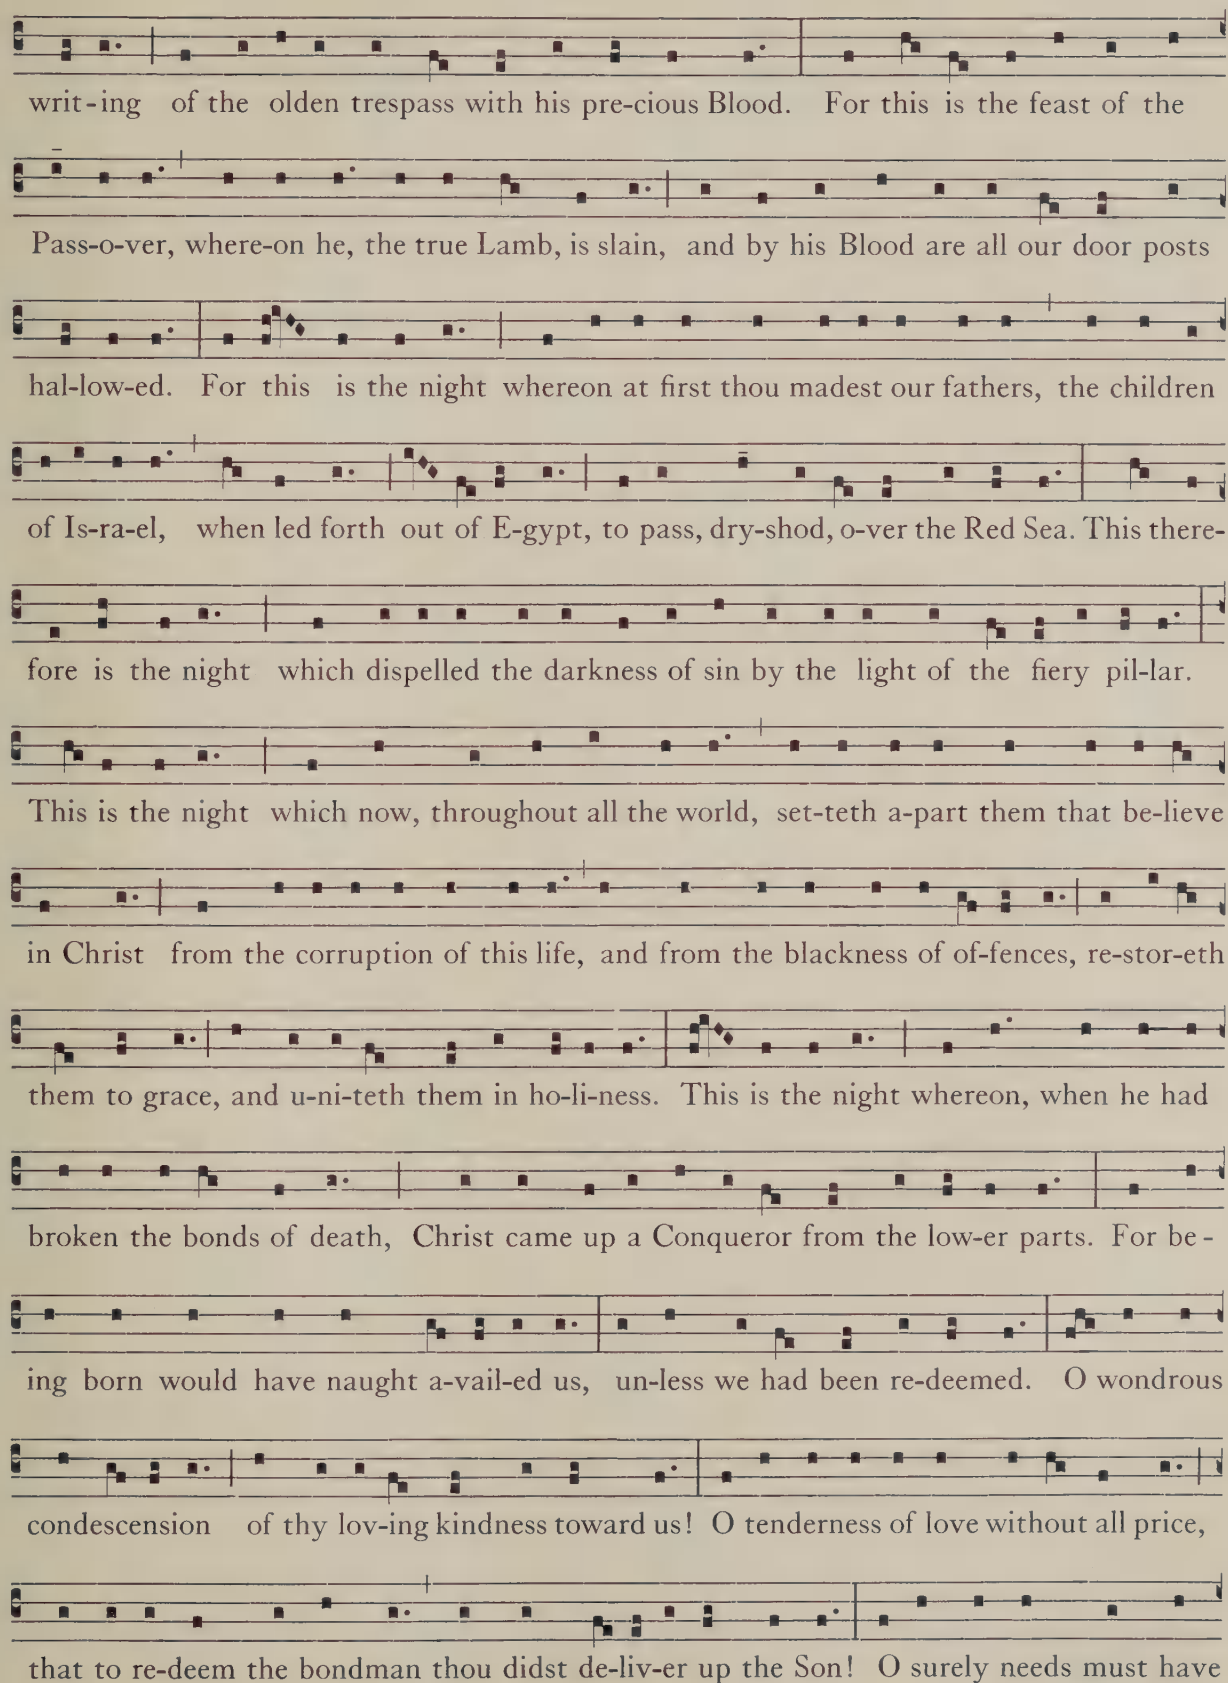 writ-ing of the olden trespass with his pre-cious Blood. For this is the feast of the
Pass-o-ver, where-on he, the true Lamb, is slain, and by his Blood are all our door posts
hal-low-ed. For this is the night whereon at first thou madest our fathers, the children
of Is-ra-el, when led forth out of E-gypt, to pass, dry-shod, o-ver the Red Sea. This there-
fore is the night which dispelled the darkness of sin by the light of the fiery pil-lar.
This is the night which now, throughout all the world, set-teth a-part them that be-lieve
in Christ from the corruption of this life, and from the blackness of of-fences, re-stor-eth
them to grace, and u-ni-teth them in ho-li-ness. This is the night whereon, when he had
broken the bonds of death, Christ came up a Conqueror from the low-er parts. For be-
ing born would have naught a-vail-ed us, un-less we had been re-deemed. O wondrous
condescension of thy lov-ing kindness toward us! O tenderness of love without all price,
that to re-deem the bondman thou didst de-liv-er up the Son! O surely needs must have